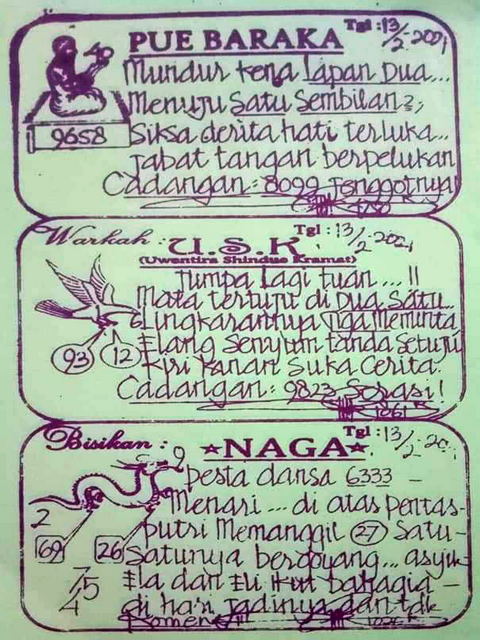 PUE BARAKA
Tgl : 13/2 2021
9658
Mundur kena lapan Dua...
Menuju Satu Sembilan
Siksa derita hati terluka...
Jabat tangan berpelukan
Cadangan : 8099 Jenggotnya
Warkah : U.S.K
Tgl : 13/2 2021
(Uwentira Shindue Kramat)
Jumpa lagi tuan ... !!
Mata tertuju di Dua Satu..
Lingkarannya nga Meminta
Elang Senyum tanda Setuju
Kiri Kanan Suka Cerita.
93 12
Cadangan : 9823 Serasi!
1061
Bisikan : NAGA
Tgl : 13/2
9
pesta dansa 6333 —
Menari ... di atas pentas-
putri Memanggil 27 Satu-
Satunya bergoyang... asyik-
2
69 26
Ela dan Eli ikut bahagia —
7
5
4
di hari jadinya
Romen